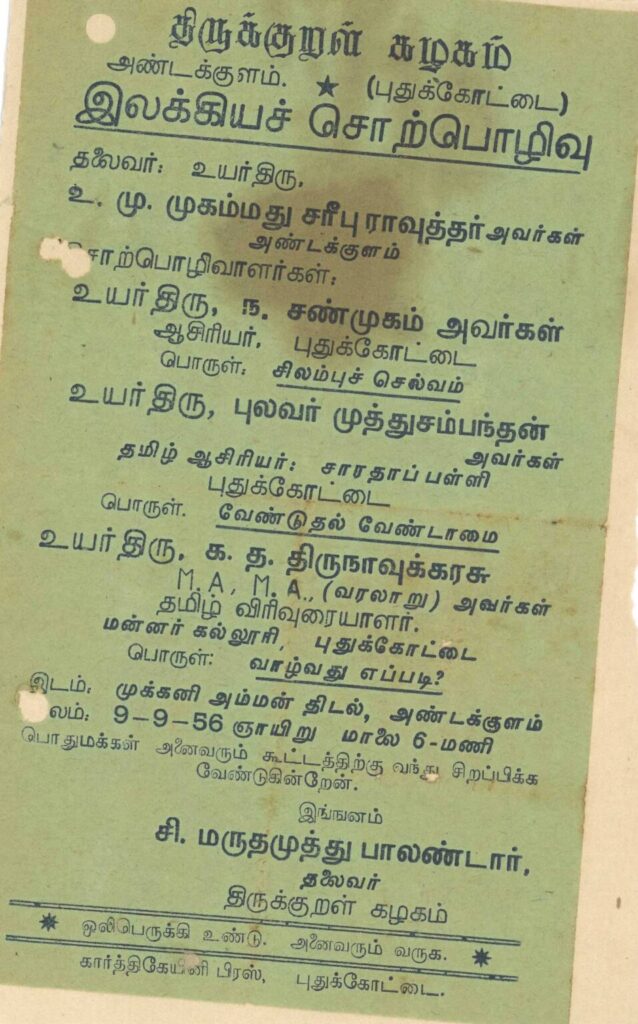 திருக்குறள் கழகம்
அண்டக்குளம். ★ (புதுக்கோட்டை)
இலக்கியச் சொற்பொழிவு
தலைவர்: உயர்திரு,
உ. மு. முகம்மது சரீபு ராவுத்தர் அவர்கள்
அண்டக்குளம்
சொற்பொழிவாளர்கள்:
உயர்திரு, ந. சண்முகம் அவர்கள்
ஆசிரியர், புதுக்கோட்டை
பொருள்: சிலம்புச் செல்வம்
உயர்திரு, புலவர் முத்துசம்பந்தன்
அவர்கள்
தமிழ் ஆசிரியர்: சாரதாப்பள்ளி
புதுக்கோட்டை
பொருள். வேண்டுதல் வேண்டாமை
உயர்திரு, க. த. திருநாவுக்கரசு
M. A, M. A., (வரலாறு) அவர்கள்
தமிழ் விரிவுரையாளர்.
மன்னர் கல்லூரி, புதுக்கோட்டை
பொருள்: வாழ்வது எப்படி?
இடம்: முக்கனி அம்மன் திடல், அண்டக்குளம்
லம்: 9-9-56 ஞாயிறு மாலை 6-மணி
பொதுமக்கள் அனைவரும் கூட்டத்திற்கு வந்து சிறப்பிக்க
வேண்டுகின்றேன்.
இங்ஙனம்
சி. மருதமுத்து பாலண்டார்,
தலைவர்
திருக்குறள் கழகம்
ஒலிபெருக்கி உண்டு. அனைவரும் வருக.
கார்த்திகேயினி பிரஸ், புதுக்கோட்டை.